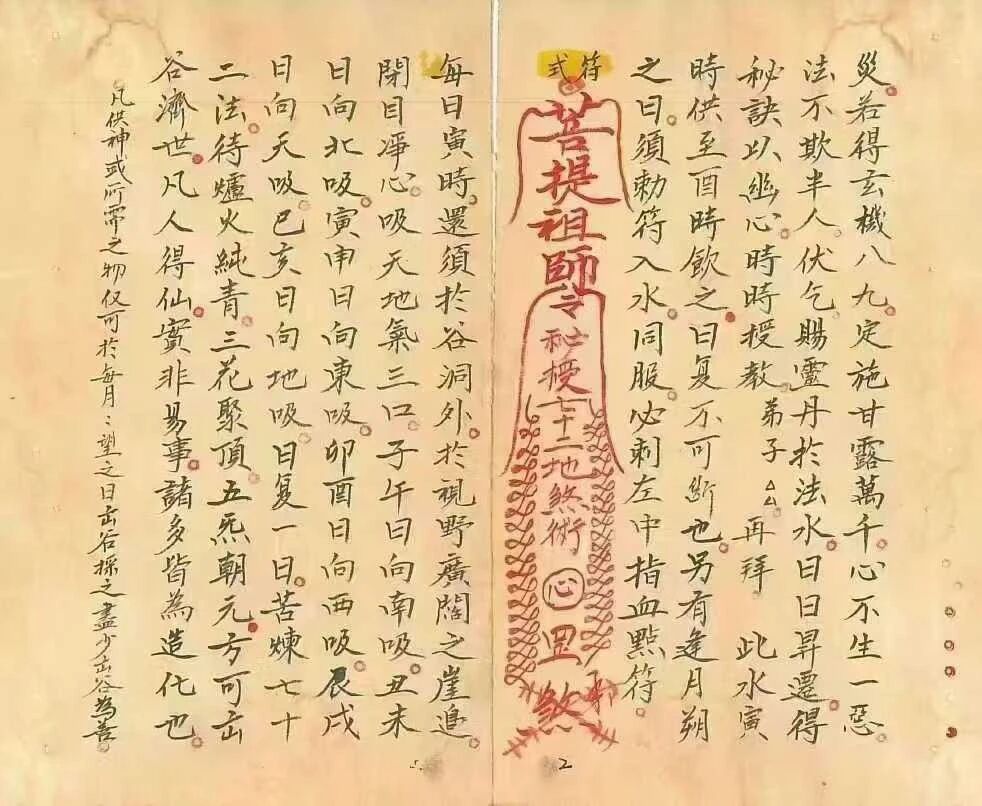 災若得玄機八九定施甘露萬千心不生一惡
法不欺半人伏乞賜靈丹於法水日日昇遷得
秘訣以幽心時時授教弟子△△再拜 此水寅
時供至酉時飲之日复不可斷也另有逢月朔
之日須勅符入水同服必刺左中指血點符
符式
菩提祖師令秘授七十二地煞術心罡煞
每日寅時還須於谷洞外於視野廣闊之崖邊
閉目凈心吸天地氣三口子午日向南吸丑未
日向北吸寅申日向東吸卯酉日向西吸辰戌
日向天吸巳亥日向地吸日复一日苦煉七十
二法待爐火純青三花聚頂五炁朝元方可出
谷濟世凡人得仙實非易事諸多皆為造化也
凡供神或所需之物仅可於每月:望之日出谷採之盡少出谷為善
2